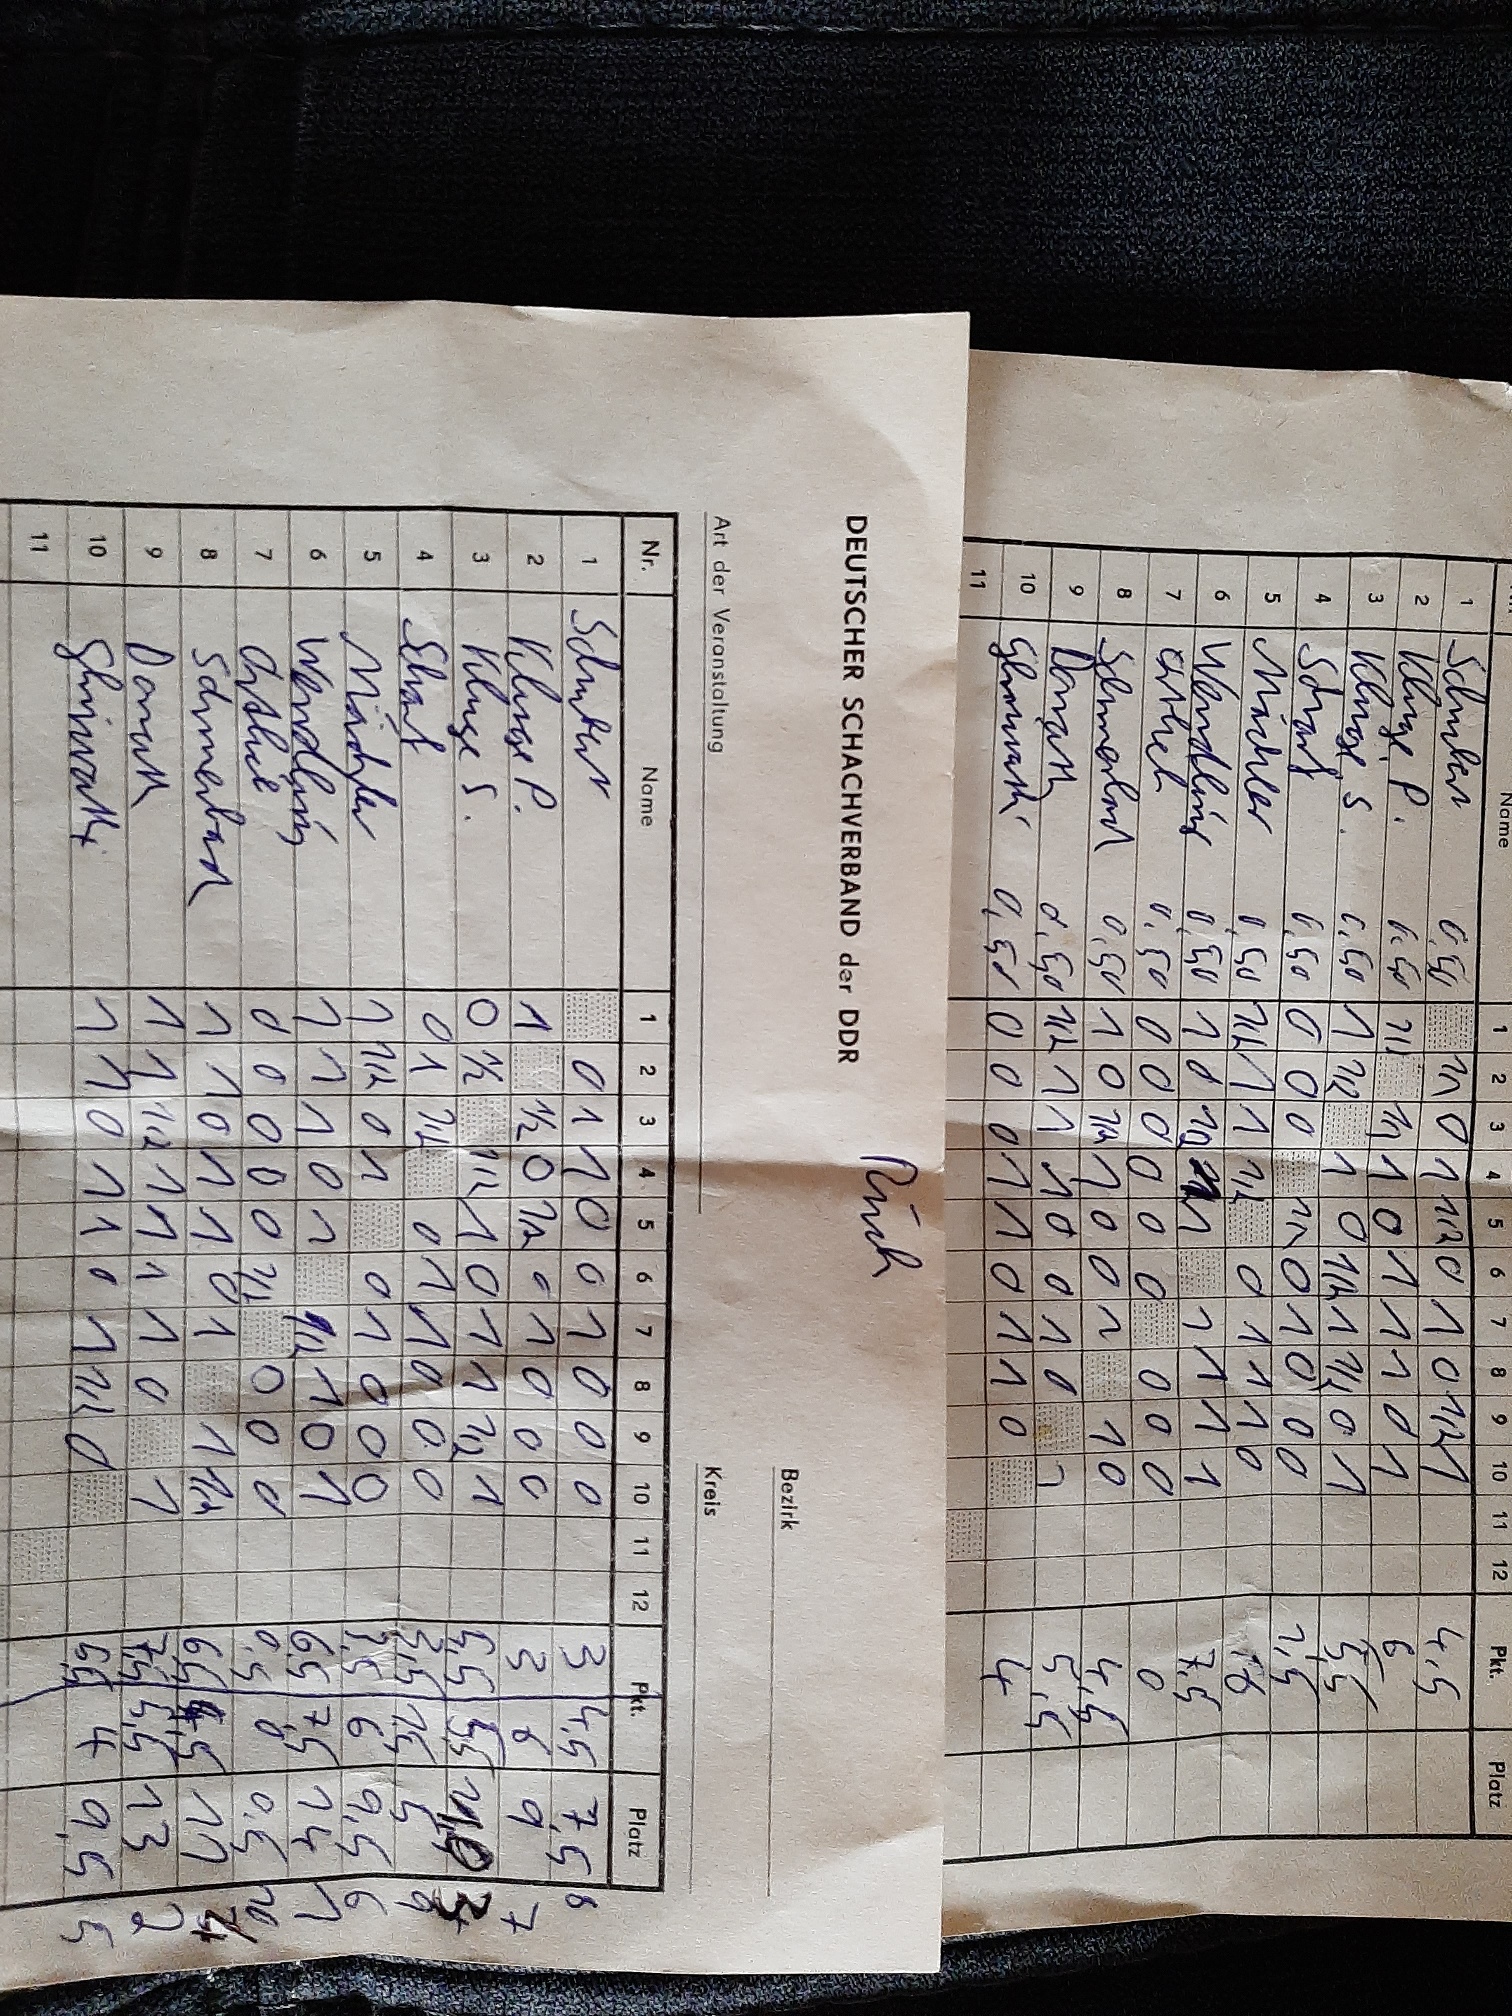 Name 1 2 3 4 5 6 7 8 9 10 11 12 Pkt. Platz
1 Schubert 0,50 1/2 0 1 1/2 0 1 0 1/2 1 4,5
2 Kluge P. 0,50 1/2 1/2 1 0 1 1 1 0 1 6
3 Kluge S. 0,50 1 1/2 1 0 1/2 1 1/2 0 1 5,5
4 Scharf 0,50 0 0 0 1/2 0 1 0 0 0 1,5
5 Mächler 0,50 1/2 1 1 1/2 0 1 1 1 0 6
6 Wendling 0,50 1 0 1/2 1 1 1 1 1 7,5
7 0,50 0 0 0 0 0 0 0 0 0 0
8 Schmerbach 0,50 1 0 1/2 1 0 0 1 1 0 4,5
9 Donath 0,50 1/2 1 1 1 0 0 1 0 1 5,5
10 0,50 0 0 0 1 1 0 1 1 0 4
11
DEUTSCHER SCHACHVERBAND der DDR
Bezirk
Art der Veranstaltung Kreis
Nr. Name 1 2 3 4 5 6 7 8 9 10 11 12 Pkt. Platz
1 Schubert 0 1 1 0 0 1 0 0 0 3 4,5 7,5 8
2 Kluge P. 1 1/2 0 1/2 0 1 0 0 0 3 6 9 7
3 Kluge S. 0 1/2 1/2 1 0 1 1 1/2 1 5,5 5,5 3
4 Scharf 0 1 1/2 0 1 1 0 0 0 3,5 1,5 5 9
5 Mächler 1 1/2 0 1 0 1 0 0 0 3,5 6 9,5 6
6 Wendling 1 1 1 0 1 1/2 1 0 1 6,5 7,5 14 1
7 0 0 0 0 0 1/2 0 0 0 0,5 0 0,5 10
8 Schmerbach 1 1 0 1 1 0 1 1 1/2 6,5 4,5 11 4
9 Donath 1 1 1/2 1 1 1 1 0 1 7,5 5,5 13 2
10 1 1 0 1 1 0 1 1/2 0 5,5 4 9,5 5
11